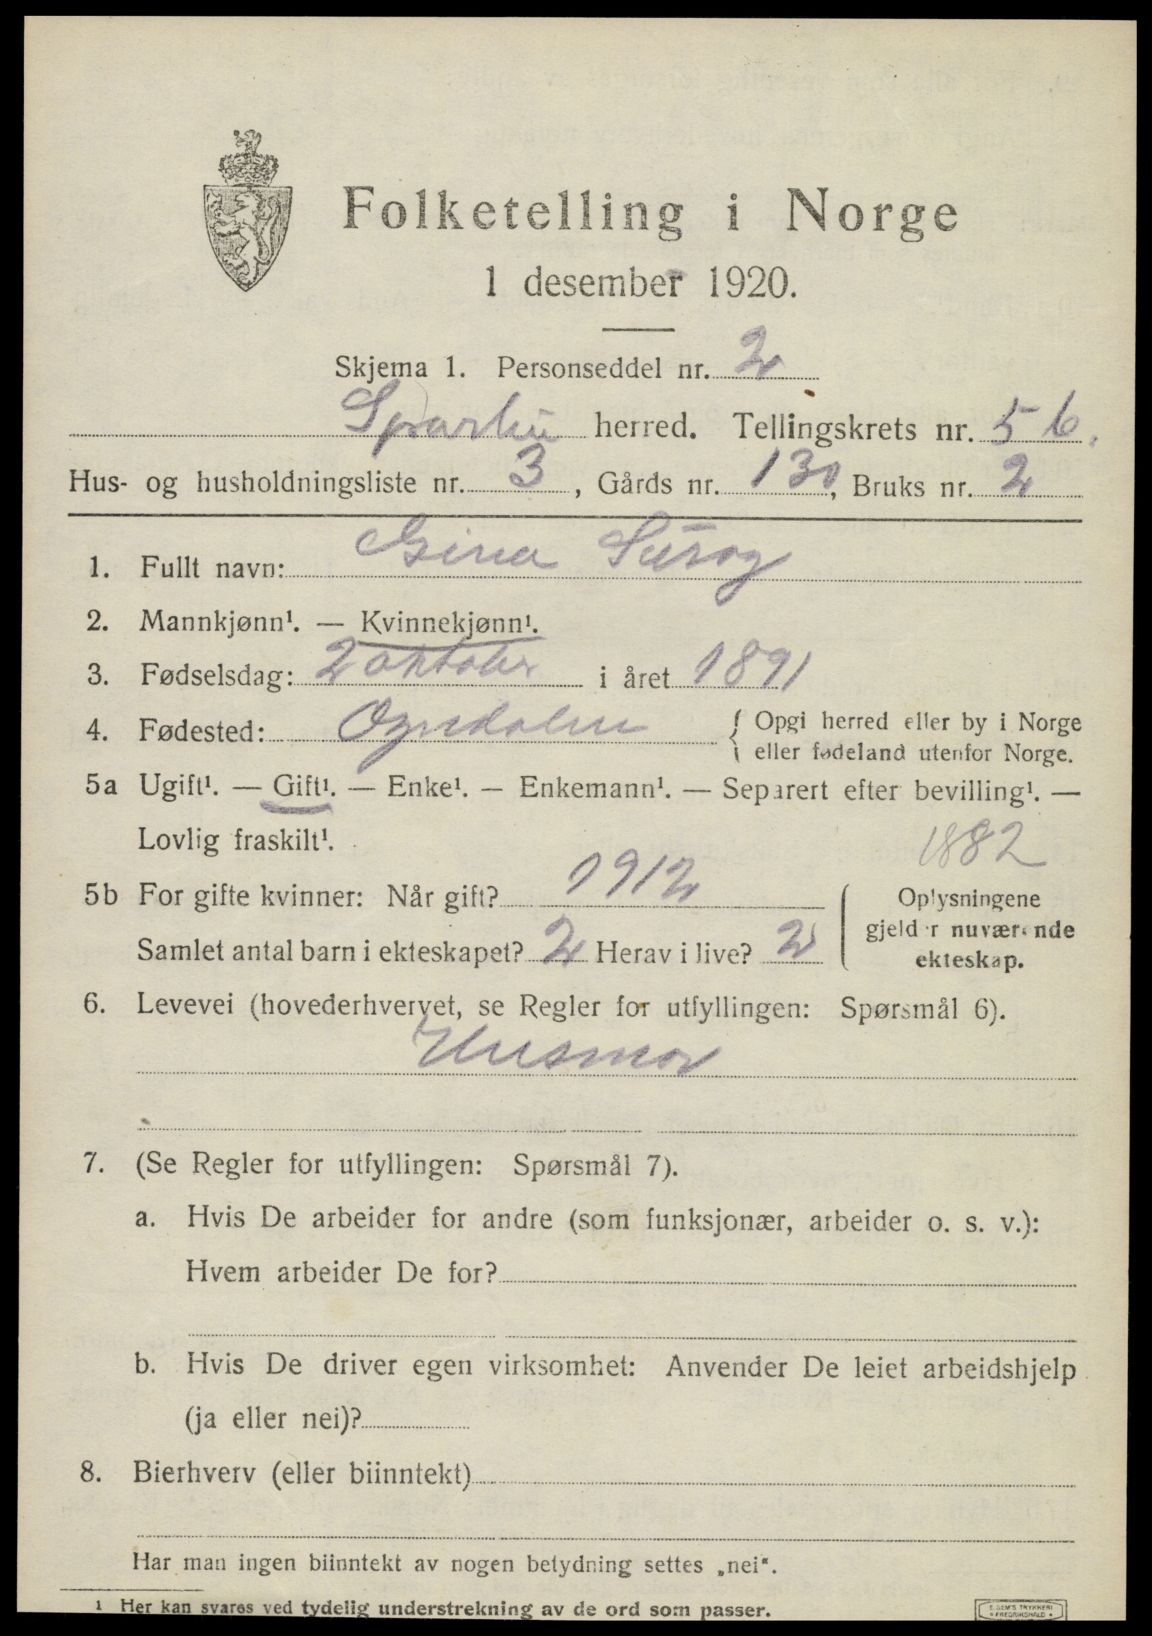 Folketelling i Norge
1 desember 1920.
Skjema 1. Personseddel nr. 2
Sparbu herred. Tellingskrets nr. 5 6.
Hus- og husholdningsliste nr. 3, Gårds nr. 130, Bruks nr. 2
1. Fullt navn: Gina
2. Mannkjønn¹. — Kvinnekjønn¹.
3. Fødselsdag: 2 oktober i året 1891
4. Fødested: Ogndalen { Opgi herred eller by i Norge
eller fødeland utenfor Norge.
5a Ugift¹. — Gift¹. — Enke¹. — Enkemann¹. — Separert efter bevilling¹. —
Lovlig fraskilt¹.
1882
5b For gifte kvinner: Når gift? 1912
Samlet antal barn i ekteskapet? 2 Herav i live? 2
Oplysningene
gjelder nuværende
ekteskap.
6. Levevei (hovederhvervet, se Regler for utfyllingen: Spørsmål 6).
Husmor
7. (Se Regler for utfyllingen: Spørsmål 7).
a. Hvis De arbeider for andre (som funksjonær, arbeider o. s. v.):
Hvem arbeider De for?
b. Hvis De driver egen virksomhet: Anvender De leiet arbeidshjelp
(ja eller nei)?
8. Bierhverv (eller biinntekt)
Har man ingen biinntekt av nogen betydning settes „nei“.
1 Her kan svares ved tydelig understrekning av de ord som passer.
E. SEM'S TRYKKERI
FREDRIKSHALD